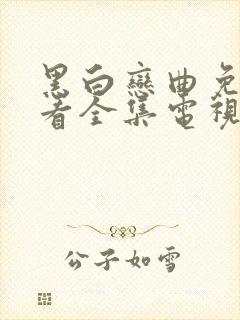 黑白戀曲免
看全集電視
公子如雪